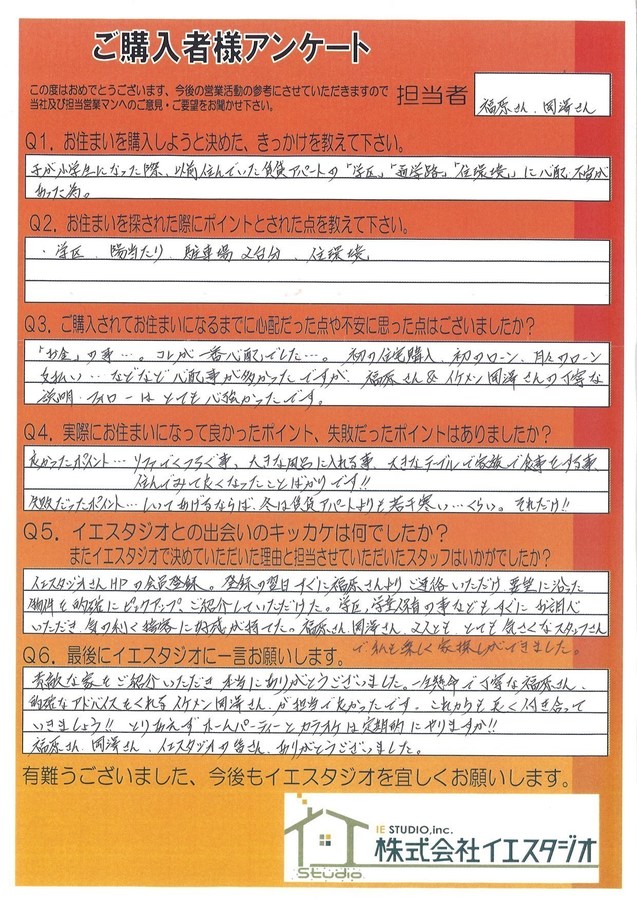 ご購入者様アンケート
この度はおめでとうございます、今後の営業活動の参考にさせていただきますので
当社及び担当営業マンへのご意見・ご要望をお聞かせ下さい。
担当者
福原さん、岡澤さん
Q1. お住まいを購入しようと決めた、きっかけを教えて下さい。
子が小学生になった際、以前住んでいた賃貸アパートの「学区」「通学路」「住環境」に心配・不安が
あった為。
Q2. お住まいを探された際にポイントとされた点を教えて下さい。
・学区、陽当たり、駐車場2台分、住環境
Q3. ご購入されてお住まいになるまでに心配だった点や不安に思った点はございましたか?
「お金」の事…。コレが一番心配でした…。初の住宅購入、初のローン、月々のローン
支払い…などなど心配事が多かったですが、福原さん&イケメン岡澤さんの丁寧な
説明・フォローはとても心強かったです。
Q4. 実際にお住まいになって良かったポイント、失敗だったポイントはありましたか?
良かったポイント…ソファでくつろぐ事、大きな風呂に入れる事、大きなテーブルで家族で食事をする事
住んでみて良くなったことばかりです!!
失敗だったポイント…しいてあげるならば、冬は賃貸アパートよりも若干寒い…くらい。それだけ!!
Q5. イエスタジオとの出会いのキッカケは何でしたか?
またイエスタジオで決めていただいた理由と担当させていただいたスタッフはいかがでしたか?
イエスタジオさんHPの会員登録。登録の翌日すぐに福原さんよりご連絡いただけ、要望に沿った
物件を的確にピックアップ、ご紹介していただけた。学区、学童保育の事などもすぐにお調べ
いただき、気の利く接客に好感が持てた。福原さん、岡澤さん、2人とも、とても気さくなスタッフさん
で私も楽しく家探しができました。
Q6. 最後にイエスタジオに一言お願いします。
素敵な家をご紹介いただき本当にありがとうございました。一生懸命で丁寧な福原さん、
的確なアドバイスをくれるイケメン岡澤さん、が担当で良かったです。これからも末長く付き合って
いきましょう!! とりあえずホームパーティーとカラオケは定期的にやりますか!!
福原さん、岡澤さん、イエスタジオの皆さん、ありがとうございました。
有難うございました、今後もイエスタジオを宜しくお願いします。
IE STUDIO,inc.
株式会社イエスタジオ
Studio